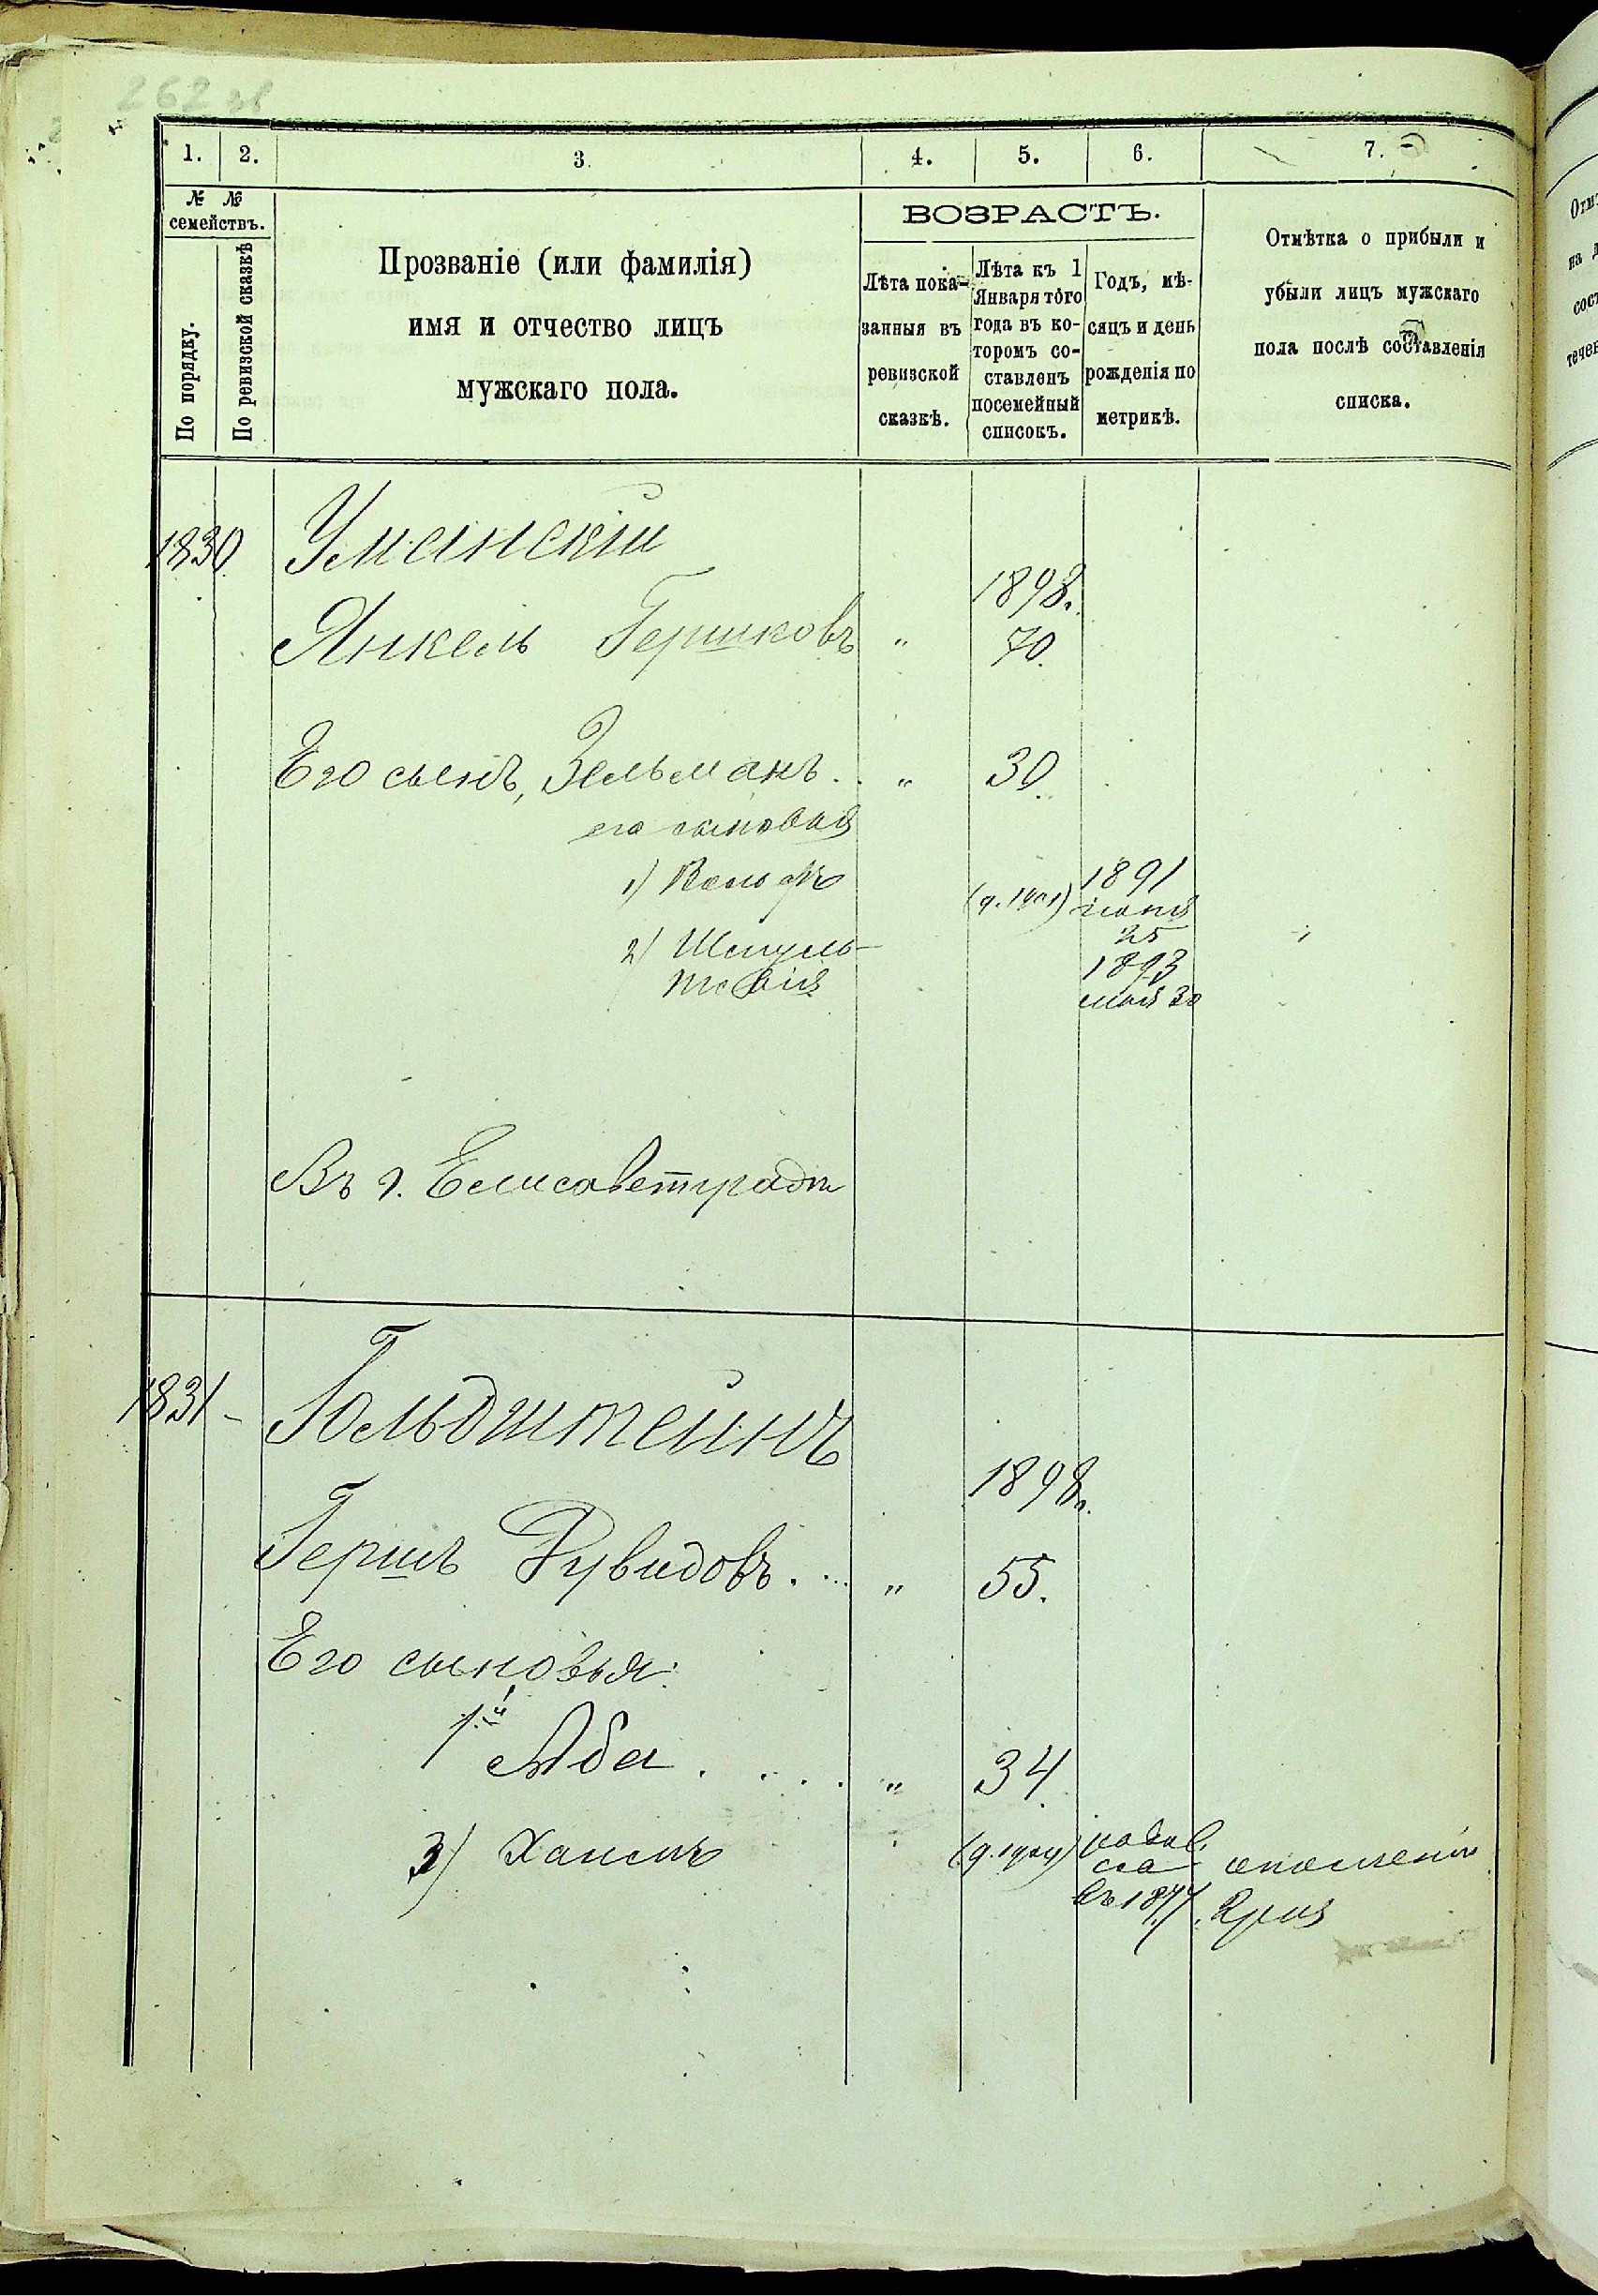 262 об
1. 2. 3. 4. 5. 6. 7.
№ №
семействъ.
По порядку.
По ревизской сказкѣ
Прозваніе (или фамилія)
имя и отчество лицъ
мужскаго пола.
ВОЗРАСТЪ.
Лѣта пока-
занныя въ
ревизской
сказкѣ.
Лѣта къ 1
Января того
года въ ко-
торомъ со-
ставленъ
посемейный
списокъ.
Годъ, мѣ-
сяцъ и день
рожденія по
метрикѣ.
Отмѣтка о прибыли и
убыли лицъ мужскаго
пола послѣ составленія
списка.
1830 Уманскій
1898.
Янкель Гершковъ " 70.
Его сынъ, Зельманъ. . " 30.
его сыновья
1) Вольфъ 1891
25
2) Шмуль 1893
Товія мая 30
Въ г. Елисаветградѣ
1831 - Гольдштейнъ
1898.
Гершъ Рувидовъ. ... " 55.
Его сыновья:
1.й Аба . . . . " 34.
3) Хаимъ
въ 1877.